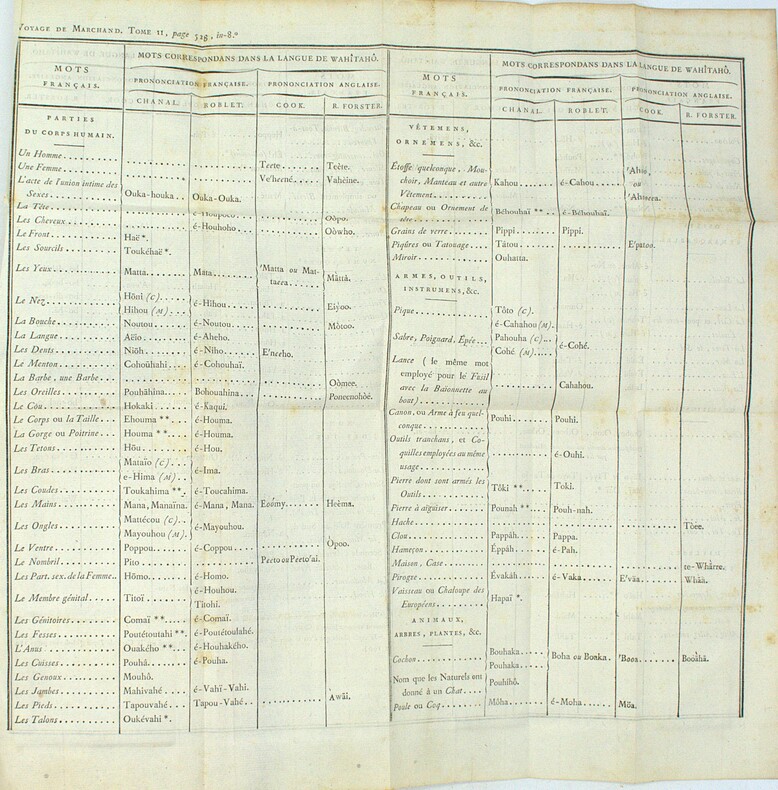 VOYAGE DE MARCHAND. TOME II, page 528, in-8.º
MOTS FRANÇAIS.
MOTS CORRESPONDANS DANS LA LANGUE DE WAHÎTAHÔ.
PRONONCIATION FRANÇAISE. PRONONCIATION ANGLAISE.
CHANAL. ROBLET. COOK. R. FORSTER.
PARTIES
DU CORPS HUMAIN.
Un Homme Teete Teète.
Une Femme Ve'heené Vaheïne.
L'acte de l'union intime des
Sexes Ouka-houka Ouka-Ouka.
La Tête
Les Cheveux é-Houhoho Oòpo.
Le Front Haë *. Oòwho.
Les Sourcils Toukéhaë *.
Les Yeux Matta Mata 'Matta ou Mat-
taeea Màttà.
Le Nez Hôni (C) é-Hihou Eiỳoo.
Hihou (M)
La Bouche Noutou é-Noutou Mòtoo.
La Langue Aëïo é-Aheho.
Les Dents Niôh é-Niho E'neeho.
Le Menton Cohoühahi é-Cohouhaï.
La Barbe, une Barbe Oòmee.
Les Oreilles Pouhâhina Bohouahina
Le Cou Hokaki é-Kaqui.
Le Corps ou la Taille Ehouma ** é-Houma.
La Gorge ou Poitrine Houma ** é-Houma.
Les Tetons Hôu é-Hou.
Les Bras Mataïo (C) é-Ima.
e-Hima (M)
Les Coudes Toukahima ** é-Toucahima.
Les Mains Mana, Manaïna. é-Mana, Mana. Eoómy Heèma.
Les Ongles Mattécou (C) é-Mayouhou.
Mayouhou (M)
Le Ventre Poppou é-Coppou Òpoo.
Le Nombril Pito Peeto ou Peeto'ai.
Les Part. sex. de la Femme Hômo é-Homo.
Le Membre génital Titoï é-Houhou.
Titohi.
Les Génitoires Comaï ** é-Comaï.
Les Fesses Poutétoutahi ** é-Poutétoulahé.
L'Anus Ouakého ** é-Houhakého.
Les Cuisses Pouhâ é-Pouha.
Les Genoux Mouhô.
Les Jambes Mahivahé é-Vahï-Vahi.
Les Pieds Tapouvahé Tapou-Vahé Awāi.
Les Talons Oukévahi *.
MOTS FRANÇAIS.
MOTS CORRESPONDANS DANS LA LANGUE DE WAHÎTAHÔ.
PRONONCIATION FRANÇAISE. PRONONCIATION ANGLAISE.
CHANAL. ROBLET. COOK. R. FORSTER.
VÊTEMENS,
ORNEMENS, &c.
Étoffe quelconque, Mou-
choir, Manteau et autre
Vêtement Kahou é-Cahou 'Ahoo,
ou
Chapeau ou Ornement de
tête Béhouhaï ** é-Béhouhaï.
Grains de verre Pippi Pippi.
Piqûres ou Tatouage Tátou E'patoo.
Miroir Ouhatta.
ARMES, OUTILS,
INSTRUMENS, &c.
Pique Tôto (C)
é-Cahahou (M)
Sabre, Poignard, Épée Pahouha (C) é-Cohé.
Cohé (M)
Lance (le même mot
employé pour le Fusil
avec la Baïonnette au
bout) Cahahou.
Canon, ou Arme à feu quel-
conque Pouhi Pouhi.
Outils tranchans, et Co-
quilles employées au même
usage é-Ouhi.
Pierre dont sont armés les
Outils Tôki ** Toki.
Pierre à aiguiser Pounah ** Pouh-nah.
Hache Tòee.
Clou Pappâh Pappa.
Hameçon Éppâh é-Pah.
Maison, Case te-Whàrre.
Pirogue Évakâh é-Vaka E'vāa Whàä.
Vaisseau ou Chaloupe des
Européens Hapaï *.
ANIMAUX,
ARBRES, PLANTES, &c.
Cochon Bouhaka Boha ou Bouka 'Booa Booàhà.
Pouhaka
Nom que les Naturels ont
donné à un Chat Pouhihô.
Poule ou Coq Môha é-Moha Möa.